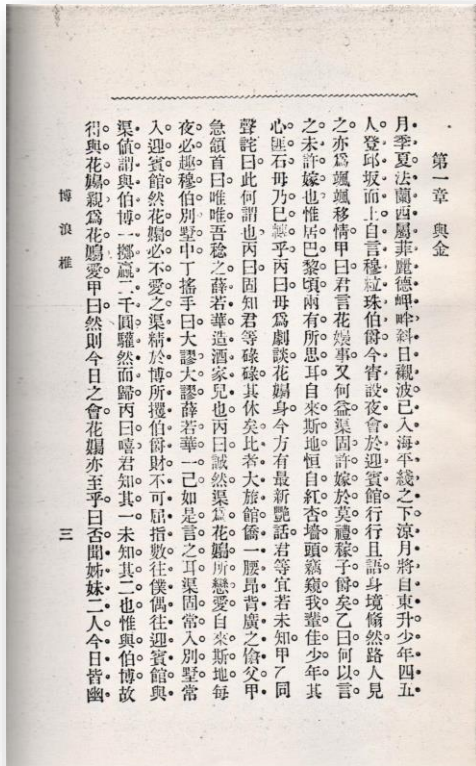 第一章 與金
月季夏法蘭西屬菲麗德岬畔斜日襯波已入海平綫之下涼月將自東升少年四五
人登邱坂而上自言穆粒珠伯爵今宵設夜會於迎賓館行行且語身境翛然路人見
之亦爲颯颯移情甲曰君言花娛事又何益渠固許嫁於莫禮稼子爵矣乙曰何以言
之未許嫁也惟居巴黎頃兩有所思耳自來斯地恒自紅杏墻頭竊窺我輩佳少年其
心匪石毋乃已 乎丙曰毋爲劇談花娛身今方有最新艷話君等宜若未知甲乙同
聲詫曰此何謂也丙曰固知君等碌碌其休矣比者大旅館僑一腰昂背廣之傖父甲
急頷首曰唯唯吾稔之薛若華造酒家兒也丙曰誠然渠爲花娛所戀愛自來斯地每
夜必趣穆伯別墅中丁搖手曰大謬大謬薛若華一己如是言之耳渠固常入別墅常
入迎賓館然花娛必不愛之渠精於博所攫伯爵財不可屈指數往僕偶往迎賓館與
渠値謂與伯博一擲贏二千圓驩然而歸丙曰嘻君知其一未知其二也惟與伯博故
得與花娛親爲花娛愛甲曰然則今日之會花娛亦至乎曰否聞姊妹二人今日皆幽
博浪椎
三